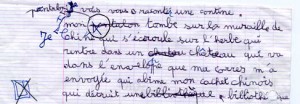 pantalon vais vous raconter une comtine.
mon pantalon tombe sur la muraille de
Je Chine qui s'écroule sur l'herbe qui
rentre dans un chateau château qui va
dans l'enveloppe que ma m'a
envoyée qui abime mon cachet chinois
qui détruit une bibliothèque